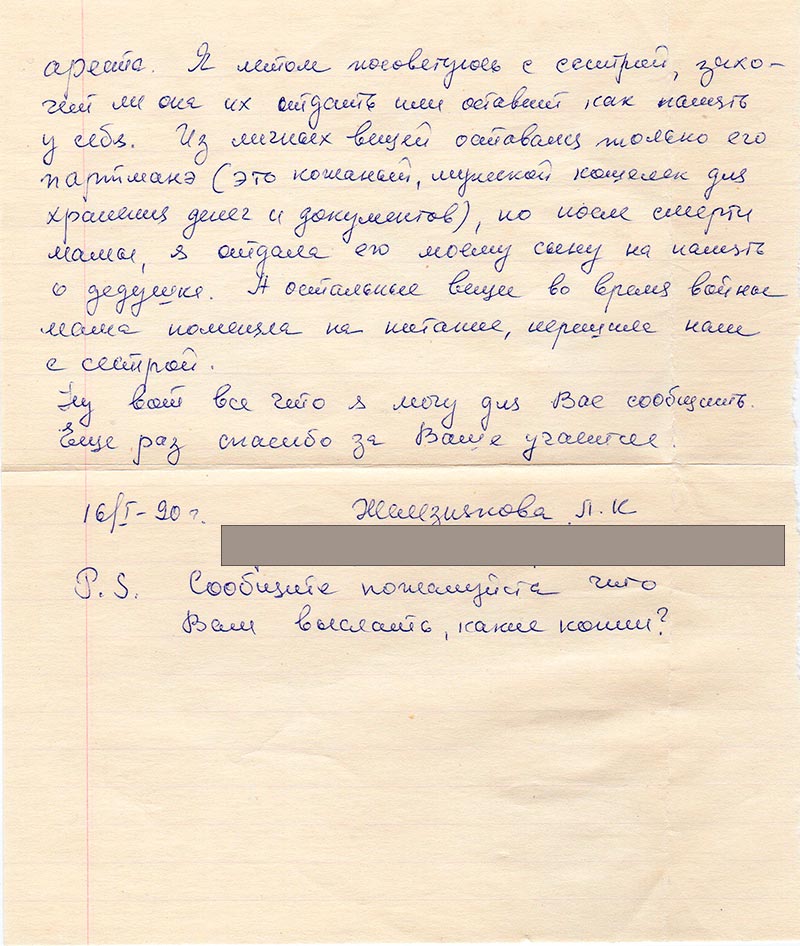 ареста. Я летом посоветуюсь с сестрой, захо-
чет ли она их отдать или оставит как память
у себя. Из личных вещей оставался только его
партманэ (это кожаный, мужской кошелек для
хранения денег и документов), но после смерти
мамы, я отдала его моему сыну на память
о дедушке. А остальные вещи во время войны
мама поменяла на питание, кормила нас
с сестрой.
Ну вот все что я могу для Вас сообщить.
Еще раз спасибо за Ваше участие.
16/I-90 г. Железнякова Л. К
P.S. Сообщите пожалуйста что
Вам выслать, какие копии?